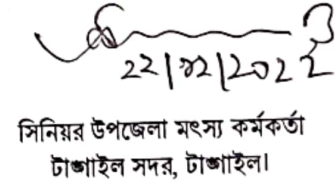 22|12|2022
সিনিয়র উপজেলা মৎস্য কর্মকর্তা
টাঙ্গাইল সদর, টাঙ্গাইল।